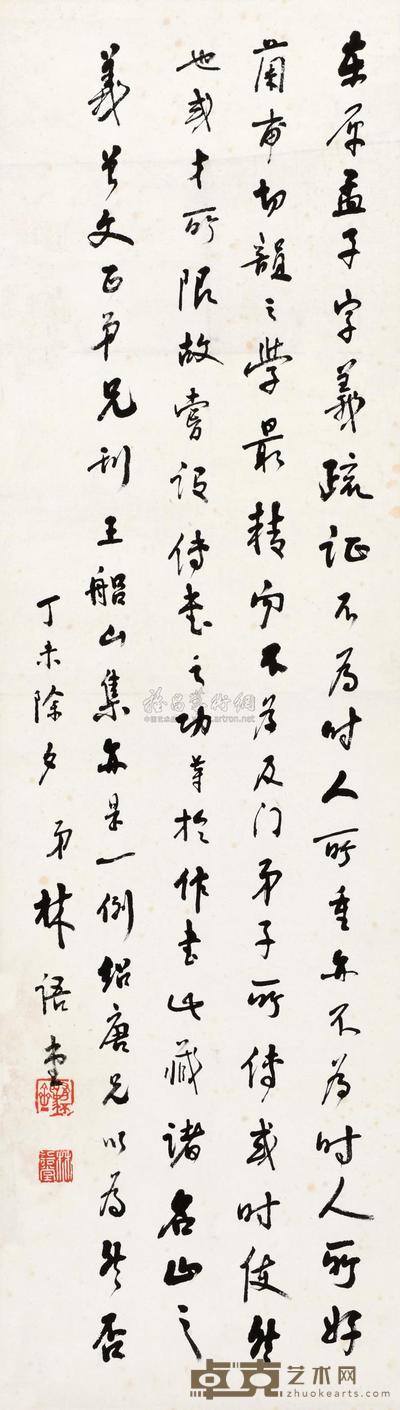 东原孟子字义疏证不为时人所重亦不为时人所好
兰甫切韵之学最精而不为及门弟子所传或时使然
也或才所限故尝谓传书之功等于作书此藏诸名山之
义曾文正弟兄刊王船山集亦是一例绍唐兄以为然否
丁未除夕 弟林语堂
卓克艺术网
www.zhuokearts.com